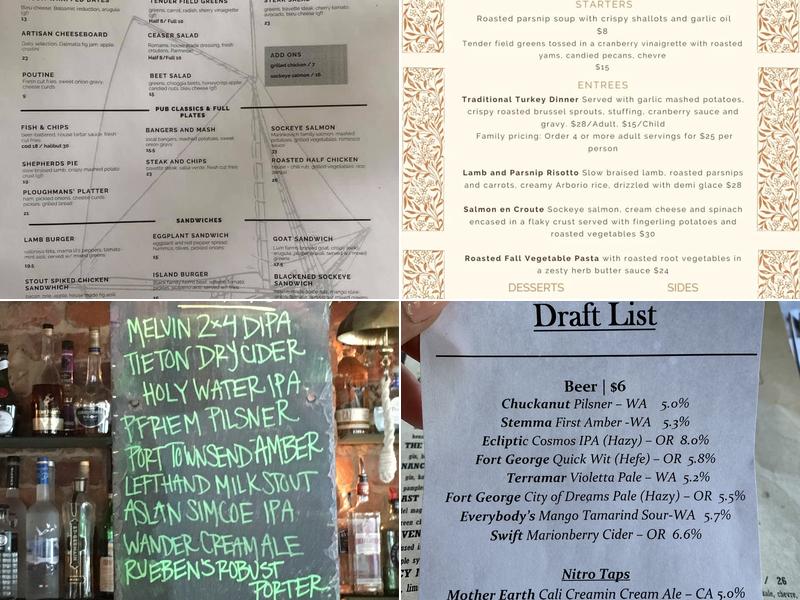 Bleu cheese, Balsamic reduction, arugula
(gf)
13
TENDER FIELD GREENS
greens, carrot, radish, sherry vinaigrette
(gf)
Half 8/ Full 10
greens, steak, cheddar, sherry
avocado, bleu cheese (gf)
23
ARTISAN CHEESEBOARD
Daily selection, Dalmatia fig jam, apple,
crostini
23
CEASER SALAD
Romaine, house made dressing, fresh
croutons, Parmesan
Half 8/Full 10
ADD ONS
grilled chicken / 7
sockeye salmon / 16
POUTINE
Fresh cut fries, sweet onion gravy,
cheese curds
9
BEET SALAD
greens, chioggia beets, honeycrisp apple,
candied nuts, bleu cheese (gf)
15
PUB CLASSICS & FULL
PLATES
FISH & CHIPS
beer-battered, house tartar sauce, fresh
cut fries
cod 18 / halibut 30
BANGERS AND MASH
local bangers, mashed potatoes, sweet
onion gravy
15.5
SOCKEYE SALMON
mashed
potatoes, grilled vegetables, romesco
sauce
33
SHEPHERDS PIE
slow braised lamb, crispy mashed potato
crust (gf)
19
STEAK AND CHIPS
bavette steak, salsa verde, fresh cut fries
23
ROASTED HALF CHICKEN
house - chili rub, grilled vegetables, rice
26
PLOUGHMANS' PLATTER
ham, pickled onions, cheese curds,
pickles, grilled bread
21
SANDWICHES
LAMB BURGER
19.5
EGGPLANT SANDWICH
eggplant and red pepper spread,
hummus, olives, pickled onions
15
GOAT SANDWICH
17.5
STOUT SPIKED CHICKEN
SANDWICH
ISLAND BURGER
BLACKENED SOCKEYE
SANDWICH
STARTERS
Roasted parsnip soup with crispy shallots and garlic oil
$8
Tender field greens tossed in a cranberry vinaigrette with roasted
yams, candied pecans, chevre
$15
ENTREES
Traditional Turkey Dinner Served with garlic mashed potatoes,
crispy roasted brussel sprouts, stuffing, cranberry sauce and
gravy. $28/Adult, $15/Child
Family pricing: Order 4 or more adult servings for $25 per
person
Lamb and Parsnip Risotto Slow braised lamb, roasted parsnips
and carrots, creamy Arborio rice, drizzled with demi glace $28
Salmon en Croute Sockeye salmon, cream cheese and spinach
encased in a flaky crust served with fingerling potatoes and
roasted vegetables $30
Roasted Fall Vegetable Pasta with roasted root vegetables in
a zesty herb butter sauce $24
DESSERTS SIDES
MELVIN 2x4 DIPA
TIETON DRY CIDER
HOLY WATER IPA
PFRIEM PILSNER
PORT TOWNSEND AMBER
LEFTHAND MILK STOUT
ASLAN SIMCOE IPA
WANDER CREAM ALE
RUEBEN'S ROBUST
PORTER
Draft List
Beer | $6
Chuckanut Pilsner – WA 5.0%
Stemma First Amber -WA 5.3%
Ecliptic Cosmos IPA (Hazy) – OR 8.0%
Fort George Quick Wit (Hefe) – OR 5.8%
Terramar Violetta Pale – WA 5.2%
Fort George City of Dreams Pale (Hazy) – OR 5.5%
Everybody's Mango Tamarind Sour-WA 5.7%
Swift Marionberry Cider – OR 6.6%
Nitro Taps
Mother Earth Cali Creamin Cream Ale – CA 5.0%
/ 26